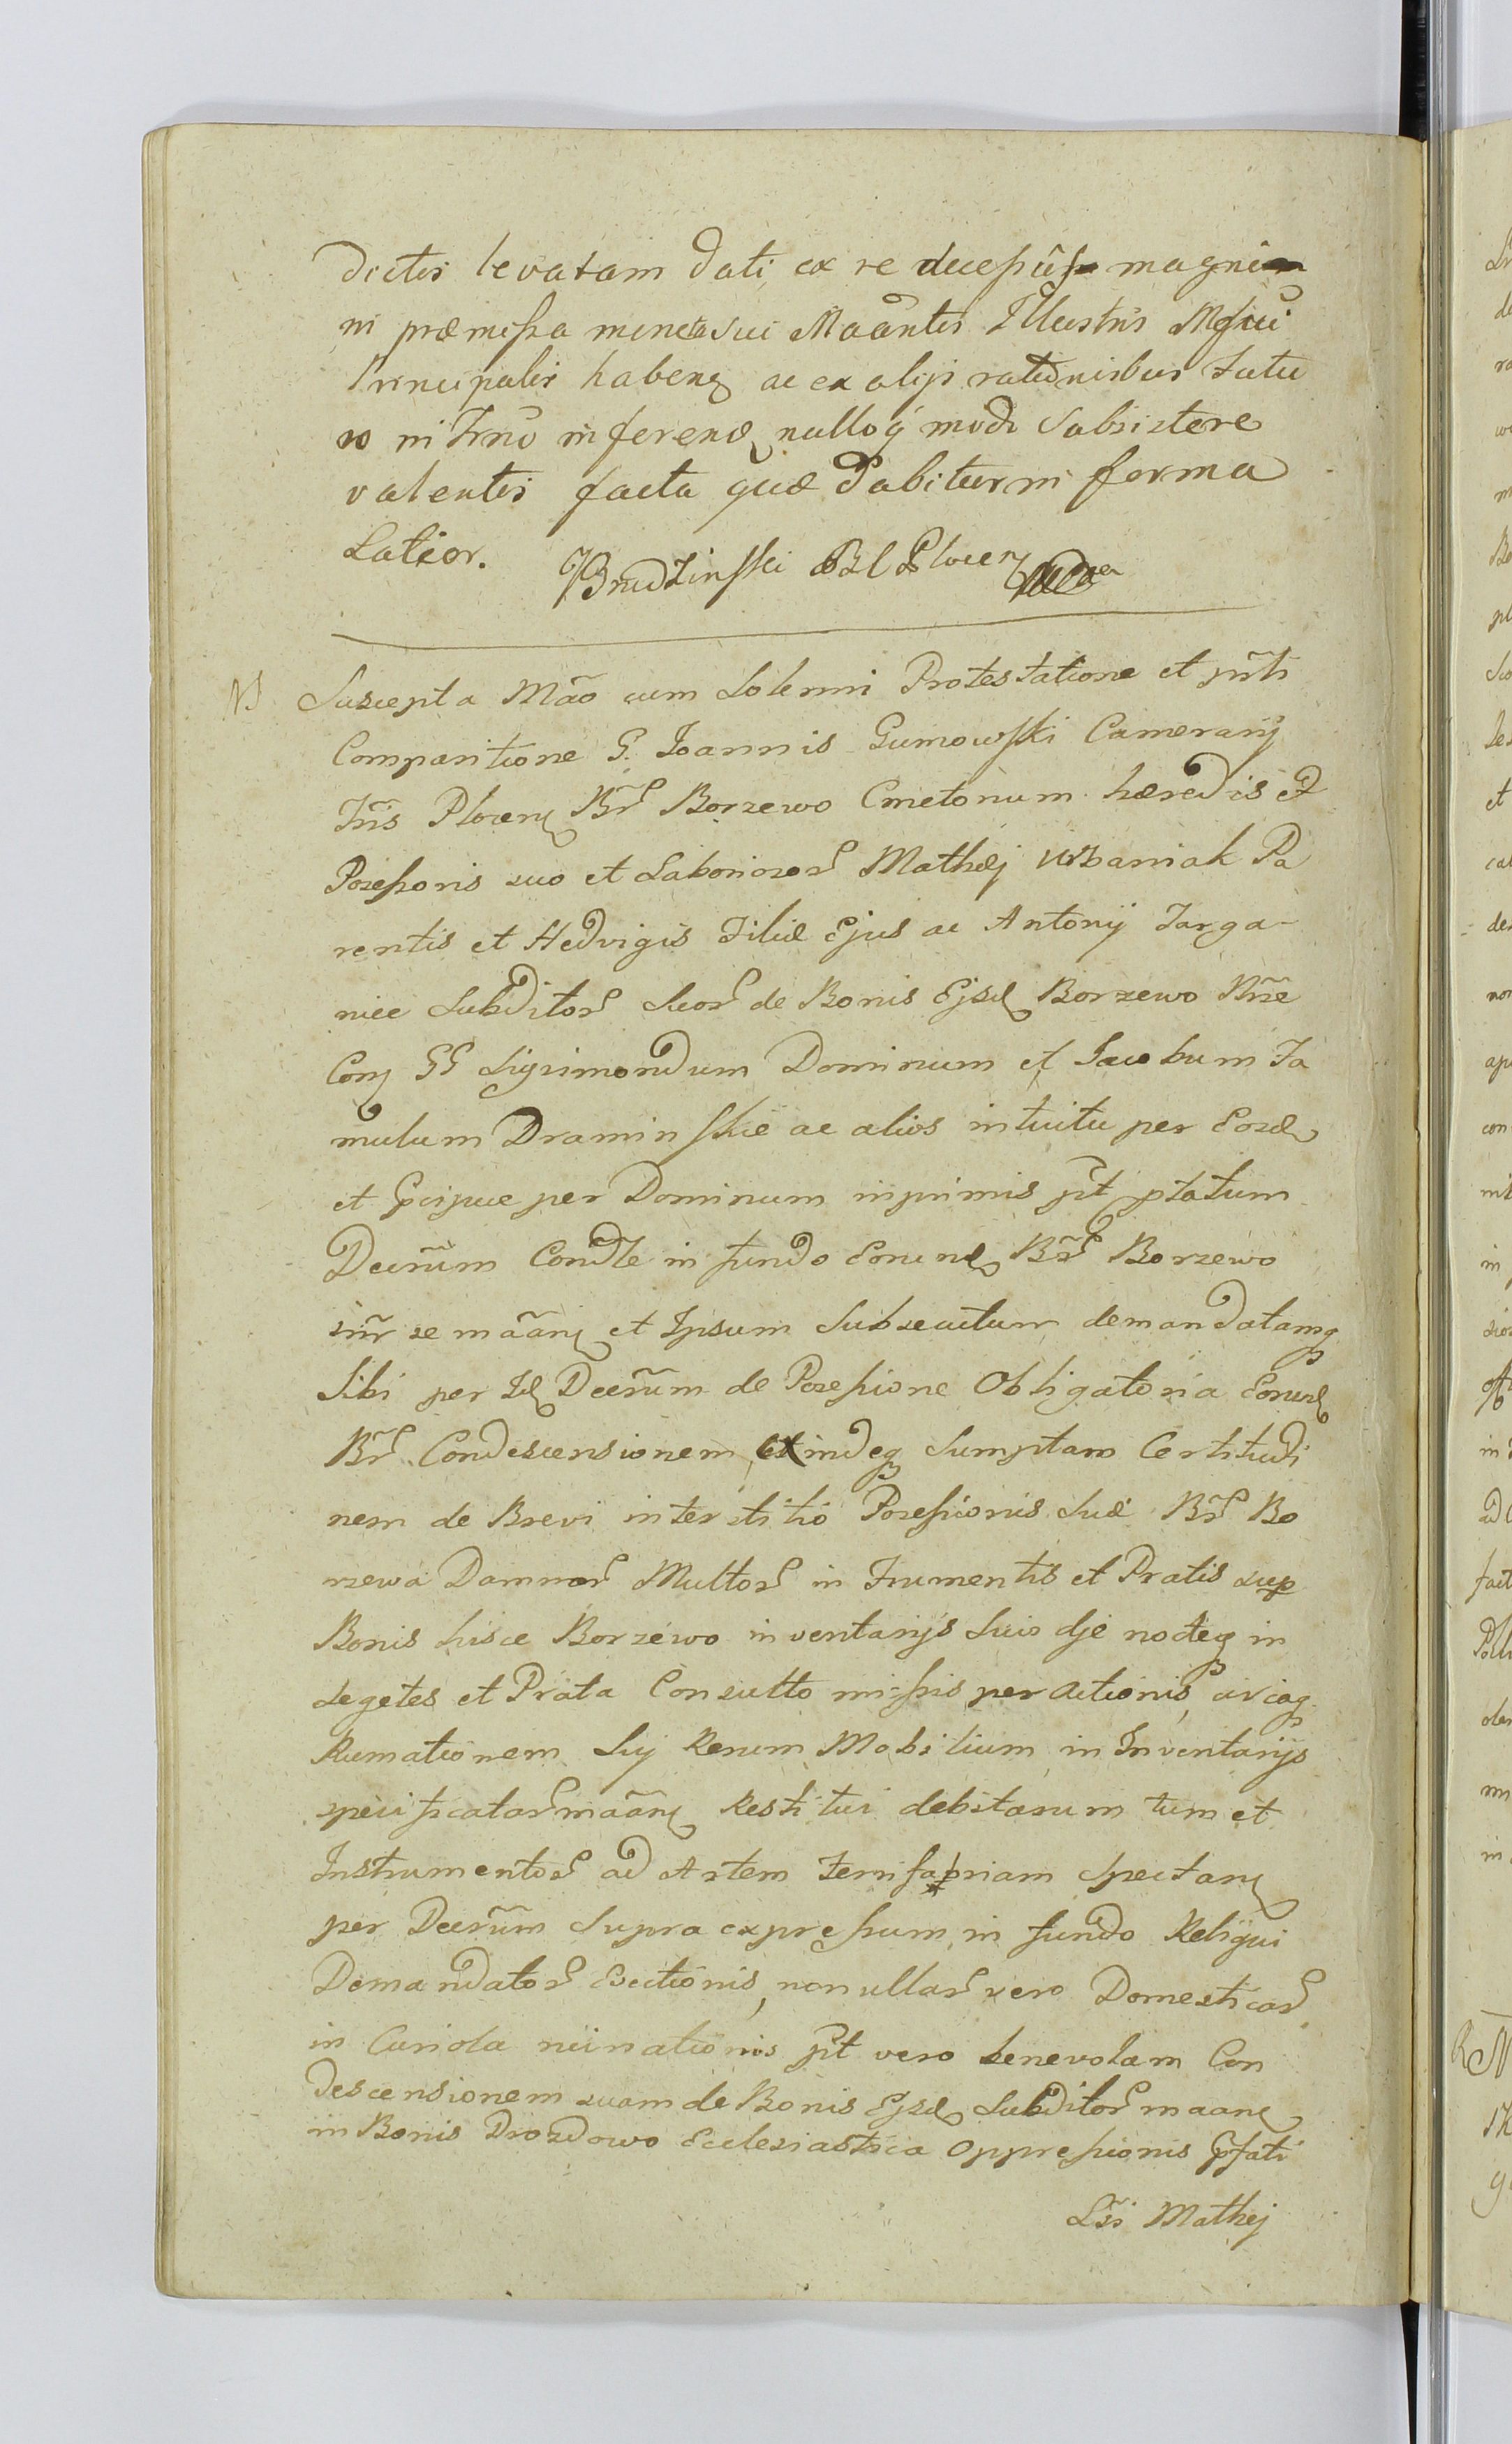 dictis levatam dati ex re
ni præmissa Maantis Illustris
Principalis haben ac ex alijs rationibus futu
ro in Trno inferend nulloq modo subsistere
valentis facta quæ dabitur in forma
Latior. Brudzinski
NB Suscepta Mão cum Solenni Protestatione et pñti
Comparitione G. Joannis Gumowski Camerarij
Tñis Plocen Bñr Borzewo Cmetonum hæredis et
Possessoris suo et Laboriosor Mathæj Urbaniak Pa
rentis et Hedvigis Filiæ Ejus ac Antonij Targa-
nice Subditor Suor de Bonis Ejsd Borzewo
Con GG Sigismondum Dominium et Jacobum Fa
mulum Draminskie ac alios intuitu per Eosd
et Præcipue per Dominum inprimis pt ptatum
Decrm Condle in fundo Eorund Bñr Borzewo
intr se mãan et Ipsum Subsecutum demandatamq
Sibi per Id Decrum de Possessione Obligatoria Eorund
Bñr Condescensionem, exindeq Sumptam Certitudi
nem de Brevi interstitio Possessionis Suæ Bñr Bo
rzewa Damnor Multor in Frumentis et Pratis sup
Bonis hisce Borzewo inventarijs Suis die nocteq in
segetes et Prata Consulto missis per actionis,
Rumationem Sij Rerum Mobilium in Inventarijs
specificatar maan Restitui debitarum tum et
Instrumentor ad Artem ferrifabriam Spectan
per Decrum Supra expressum in fundo Reliqui
Demandator Evectionis, nonullar vero Domesticar
in Curiola ruinationis pt vero benevolam Con
descensionem suam de Bonis Ejsd Subditor maan
in Bonis Drozdowo Ecclesiastica Oppressionis Præfati
Lsi Mathej